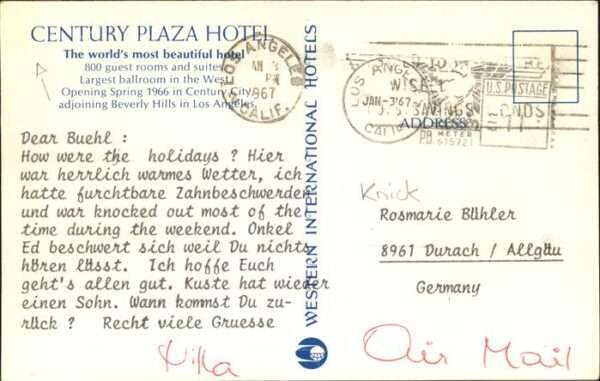 CENTURY PLAZA HOTEL
The world's most beautiful hotel
800 guest rooms and suites
Largest ballroom in the West
Opening Spring 1966 in Century City
adjoining Beverly Hills in Los Angeles
LOS ANGELES
PM
1967
CALIF.
LOS ANGELES
JAN-3'67
CALIF
U.S. POSTAGE
PB METER
515721
ADDRESS
WESTERN INTERNATIONAL HOTELS
Dear Buehl :
How were the holidays ? Hier
war herrlich warmes Wetter, ich
hatte furchtbare Zahnbeschwerden
und war knocked out most of the
time during the weekend. Onkel
Ed beschwert sich weil Du nichts
hören lässt. Ich hoffe Euch
geht's allen gut. Kuste hat wieder
einen Sohn. Wann kommst Du zu-
rück ? Recht viele Gruesse
Knick
Rosmarie Bühler
8961 Durach / Allgäu
Germany
Air Mail